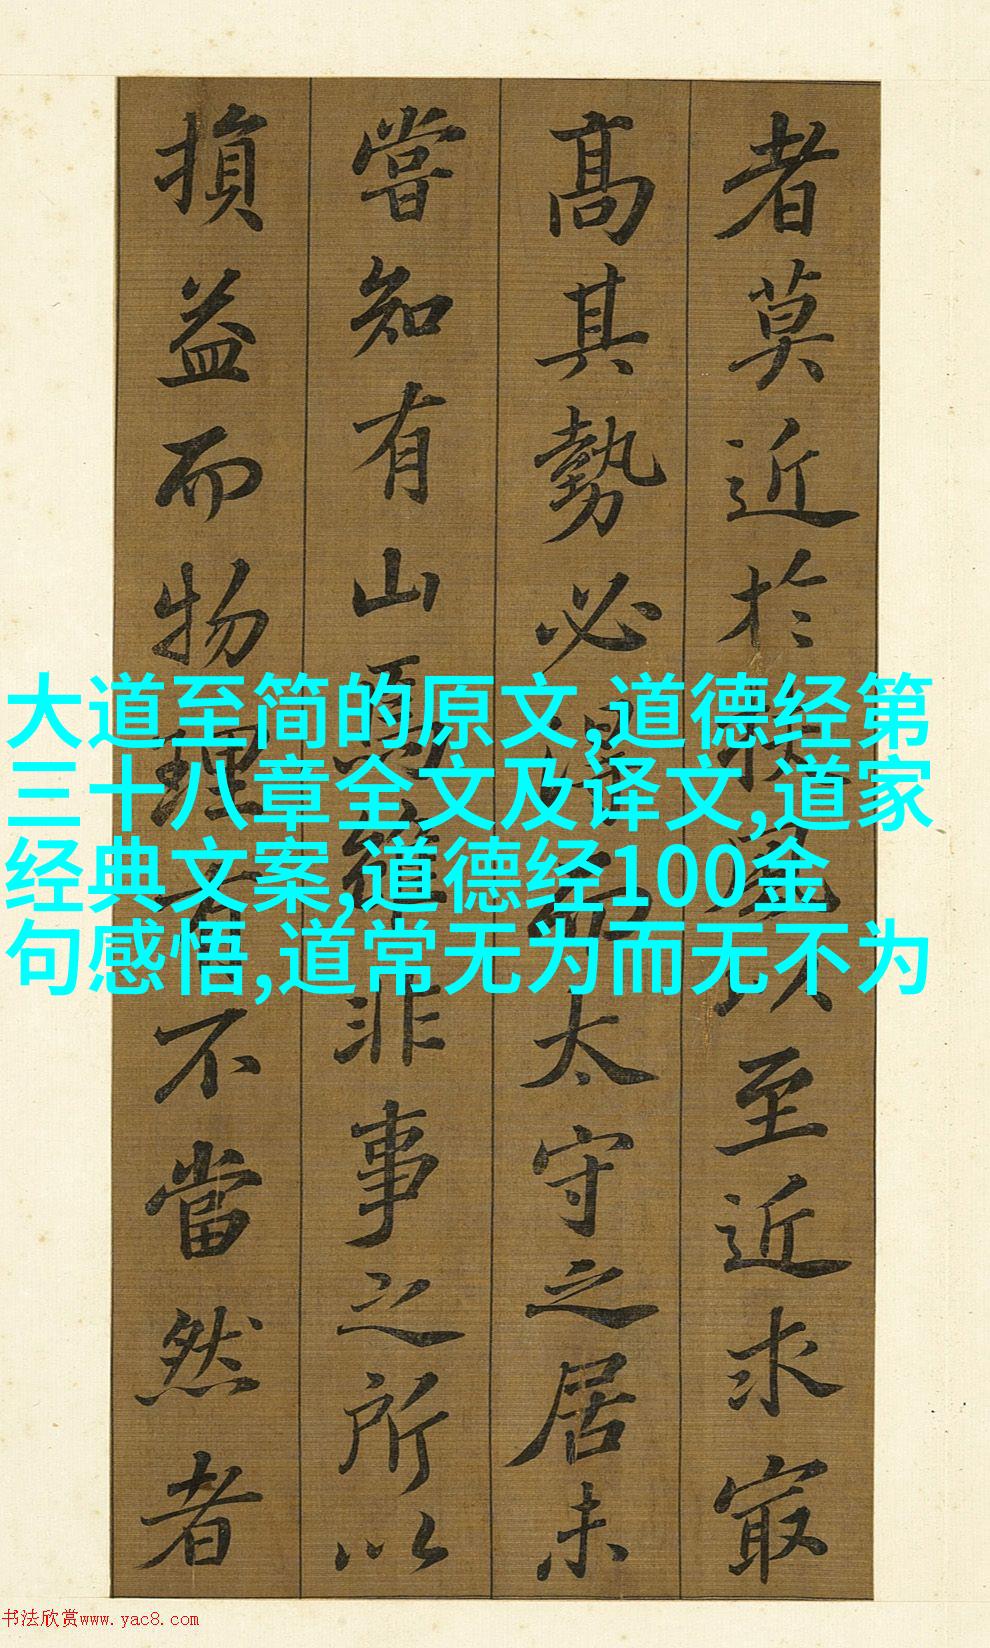 者莫近於扶風以至近求㝡
高其勢必得而太守之居未
嘗知有山焉雖非事之所以
損益而物理有不當然者
大道至简的原文,道德经第
三十八章全文及译文,道家
经典文案,道德经100金
句感悟,道常无为而无不为
书法欣赏www.yac8.com